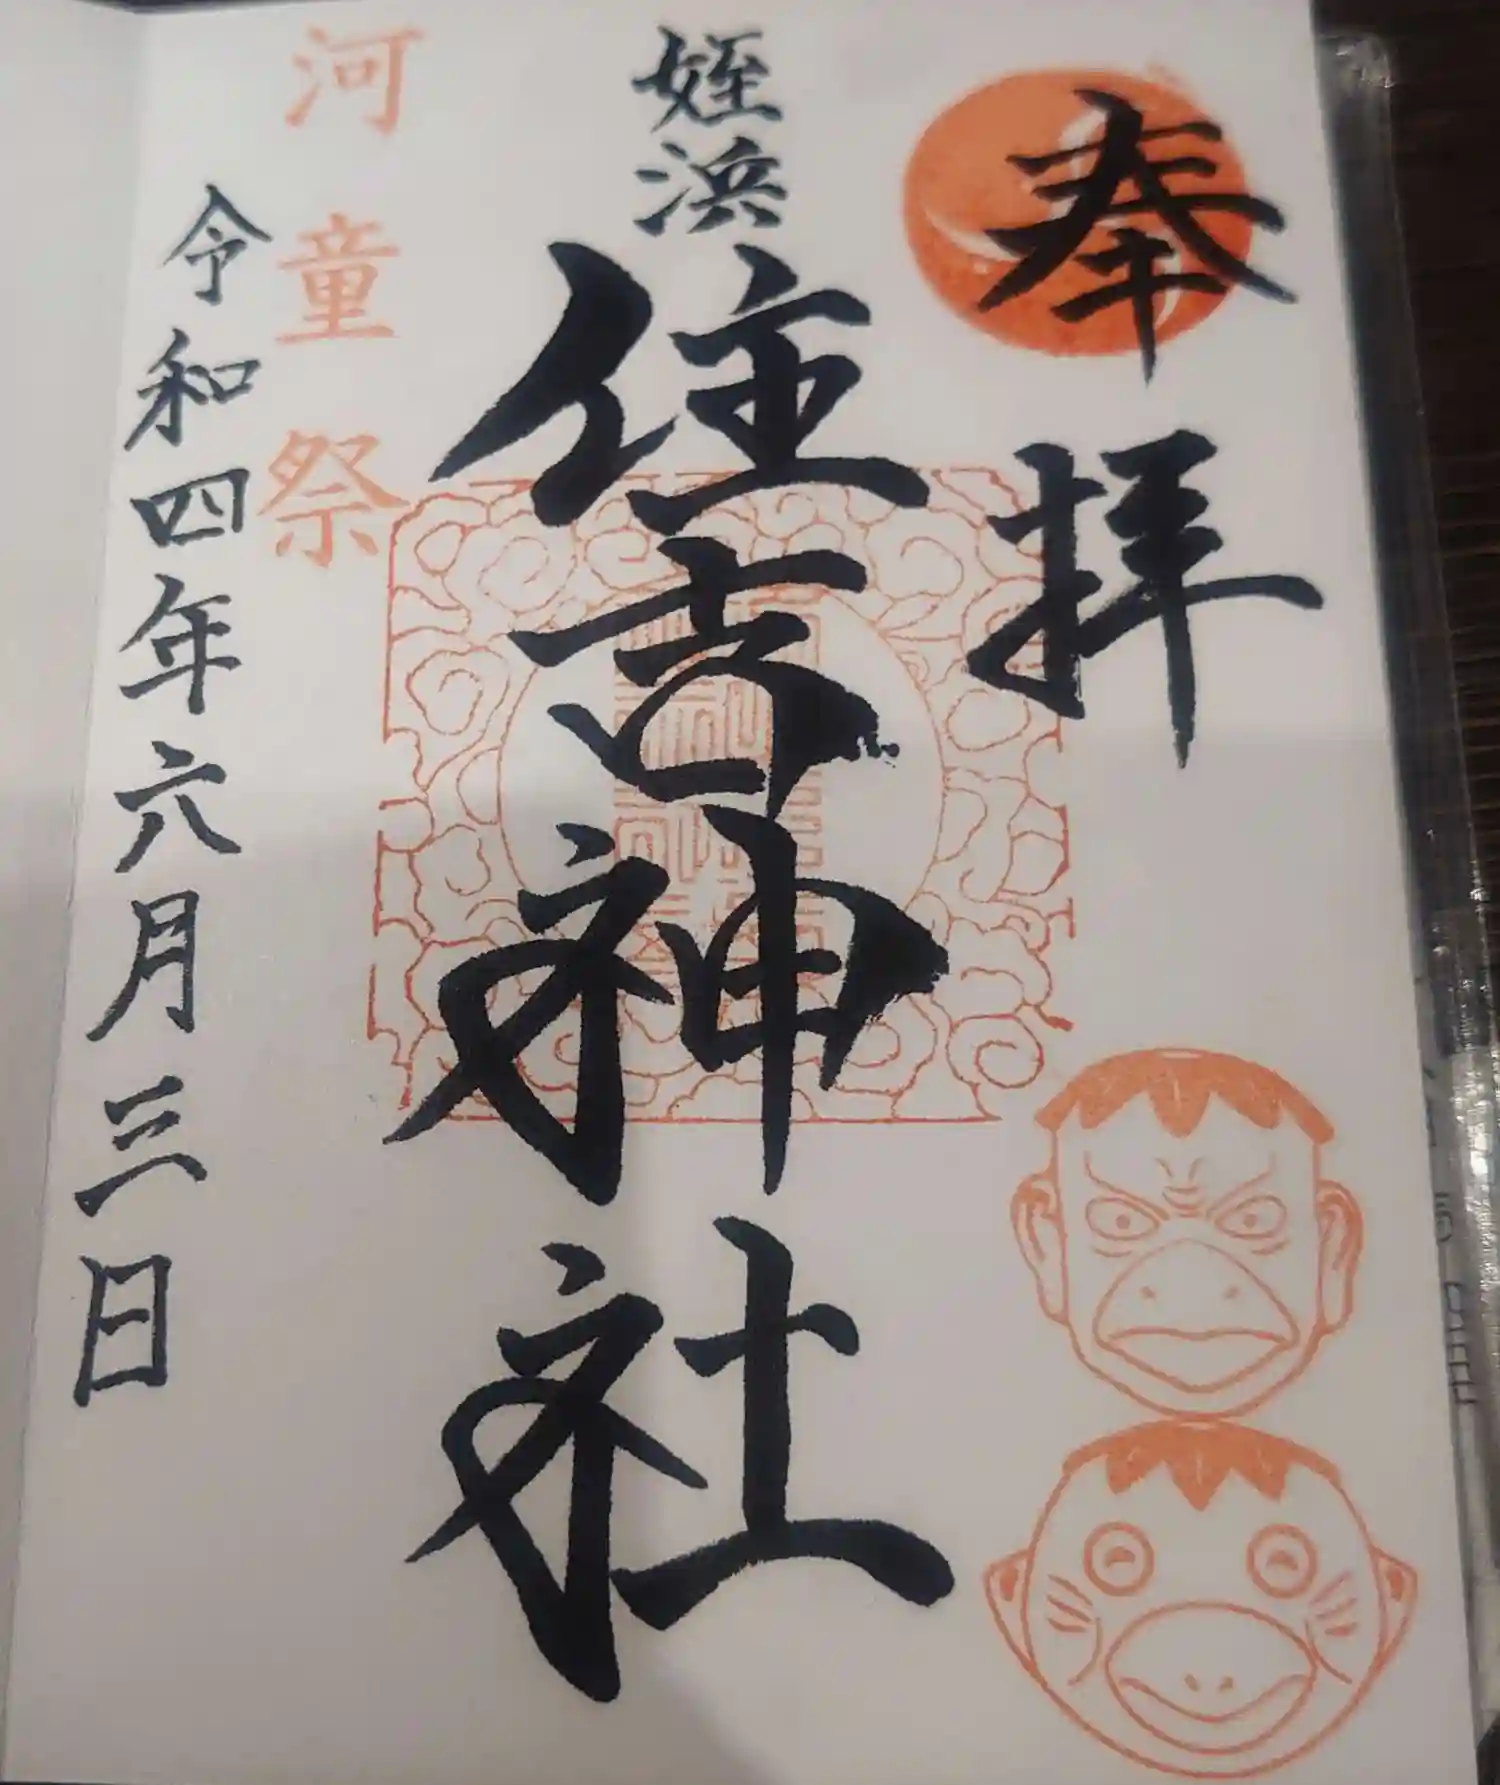 奉拝
姪浜
住吉神社
河童祭
令和四年六月三日